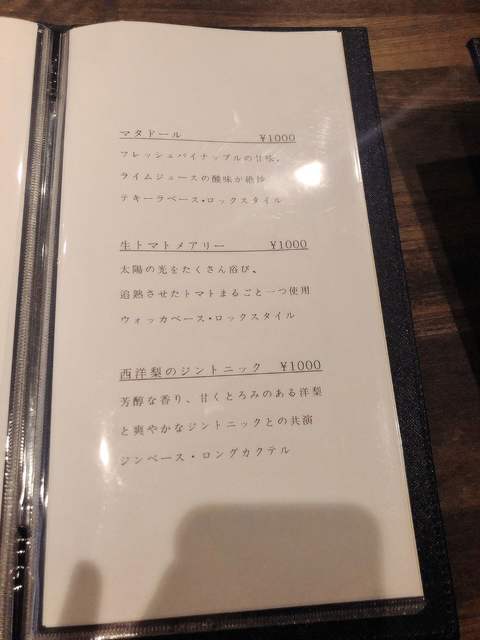 マタドール ¥1000
フレッシュパイナップルの甘味、
ライムジュースの酸味が絶妙
テキーラベース・ロックスタイル
生トマトメアリー ¥1000
太陽の光をたくさん浴び、
追熟させたトマトまるごと一つ使用
ウォッカベース・ロックスタイル
西洋梨のジントニック ¥1000
芳醇な香り、甘くとろみのある洋梨
と爽やかなジントニックとの共演
ジンベース・ロングカクテル